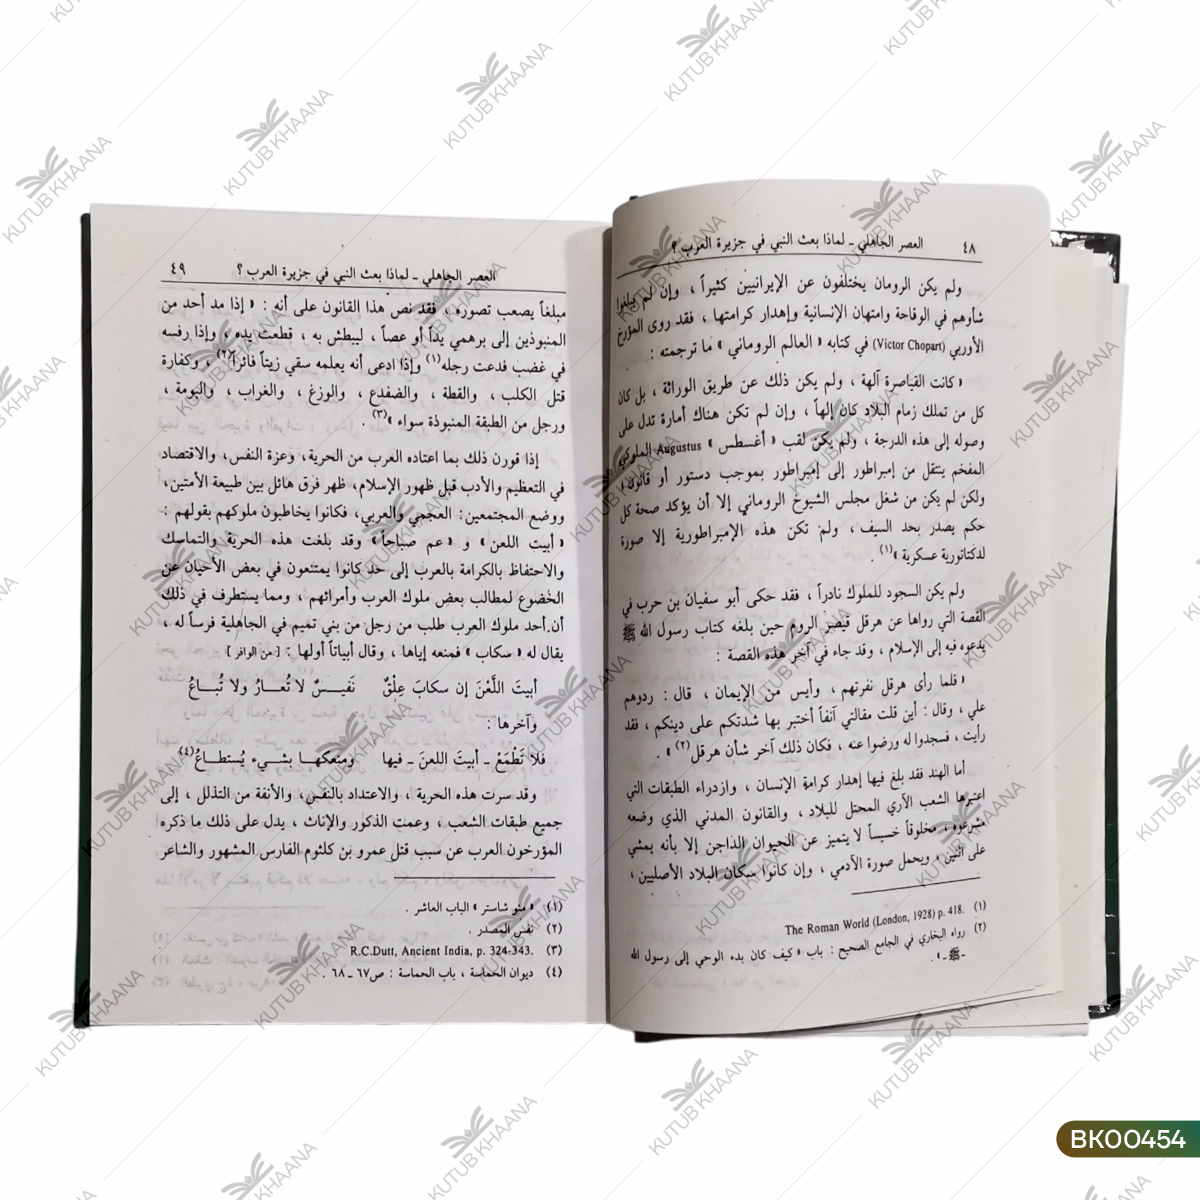 ٤٨ العصر الجاهلي - لماذا بعث النبي في جزيرة العرب ؟
ولم يكن الرومان يختلفون عن الإيرانيين كثيراً ، وإن لم يبلغوا
شأوهم في الوقاحة وامتهان الإنسانية وإهدار كرامتها ، فقد روى المؤرخ
الأوربي (Victor Chopart) في كتابه « العالم الروماني » ما ترجمته :
« كانت القياصرة آلهة ، ولم يكن ذلك عن طريق الوراثة ، بل كان
كل من تملك زمام البلاد كان إلهاً ، وإن لم تكن هناك أمارة تدل على
وصوله إلى هذه الدرجة ، ولم يكن لقب « أغسطس » Augustus الملوكي
المفخم ينتقل من إمبراطور إلى إمبراطور بموجب دستور أو قانون ،
ولكن لم يكن من شغل مجلس الشيوخ الروماني إلا أن يؤكد صحة كل
حكم يصدر بحد السيف ، ولم تكن هذه الإمبراطورية إلا صورة
لدكتاتورية عسكرية »(١)
ولم يكن السجود للملوك نادراً ، فقد حكى أبو سفيان بن حرب في
القصة التي رواها عن هرقل قيصر الروم حين بلغه كتاب رسول الله ﷺ
يدعوه فيه إلى الإسلام ، وقد جاء في آخر هذه القصة :
« فلما رأى هرقل نفرتهم ، وأيس من الإيمان ، قال : ردوهم
علي ، وقال : أين قلت مقالتي آنفاً أختبر بها شدتكم على دينكم ، فقد
رأيت ، فسجدوا له ورضوا عنه ، فكان ذلك آخر شأن هرقل(٢) » .
أما الهند فقد بلغ فيها إهدار كرامة الإنسان ، وازدراء الطبقات التي
اعتبرها الشعب الآري المحتل للبلاد ، والقانون المدني الذي وضعه
مشرعوه ، مخلوقاً خسيساً لا يتميز عن الحيوان الداجن إلا بأنه يمشي
على اثنين ، ويحمل صورة الآدمي ، وإن كانوا سكان البلاد الأصليين ،
(١) The Roman World (London, 1928) p. 418.
(٢) رواه البخاري في الجامع الصحيح : باب « كيف كان بدء الوحي إلى رسول الله
- ﷺ - » .
العصر الجاهلي - لماذا بعث النبي في جزيرة العرب ؟ ٤٩
مبلغاً يصعب تصوره ، فقد نص هذا القانون على أنه : « إذا مد أحد من
المنبوذين إلى برهمي يداً أو عصاً ، ليبطش به ، قطعت يده ، وإذا رفسه
في غضب فدعت رجله(١) وإذا ادعى أنه يعلمه سقي زيتاً فائراً(٢) ، وكفارة
قتل الكلب ، والقطة ، والضفدع ، والوزغ ، والغراب ، والبومة ،
ورجل من الطبقة المنبوذة سواء »(٣) .
إذا قورن ذلك بما اعتاده العرب من الحرية، وعزة النفس، والاقتصاد
في التعظيم والأدب قبل ظهور الإسلام، ظهر فرق هائل بين طبيعة الأمتين،
ووضع المجتمعين: العجمي والعربي، فكانوا يخاطبون ملوكهم بقولهم :
« أبيت اللعن » و « عم صباحاً » وقد بلغت هذه الحرية والتماسك
والاحتفاظ بالكرامة بالعرب إلى حد كانوا يمتنعون في بعض الأحيان عن
الخضوع لمطالب بعض ملوك العرب وأمرائهم ، ومما يستطرف في ذلك
أن أحد ملوك العرب طلب من رجل من بني تميم في الجاهلية فرساً له ،
يقال له « سكاب » فمنعه إياها ، وقال أبياتاً أولها : [ من الوافر ]
أبيتَ اللَّعْنَ إن سكابَ عِلْقٌ نَفيـسٌ لا تُعـارُ ولا تُبـاعُ
وآخرها :
فلا تَطْمَعْ - أبيتَ اللعنَ - فيها ومنعكها بشيء يُستطاعُ(٤)
وقد سرت هذه الحرية ، والاعتداد بالنفس، والأنفة من التذلل ، إلى
جميع طبقات الشعب ، وعمت الذكور والإناث ، يدل على ذلك ما ذكره
المؤرخون العرب عن سبب قتل عمرو بن كلثوم الفارس المشهور والشاعر
(١) « منو شاستر » الباب العاشر .
(٢) نفس المصدر .
(٣) R.C.Dutt, Ancient India, p. 324-343.
(٤) ديوان الحماسة ، باب الحماسة : ص٦٧ - ٦٨ .
BK00454
KUTUB KHAANA